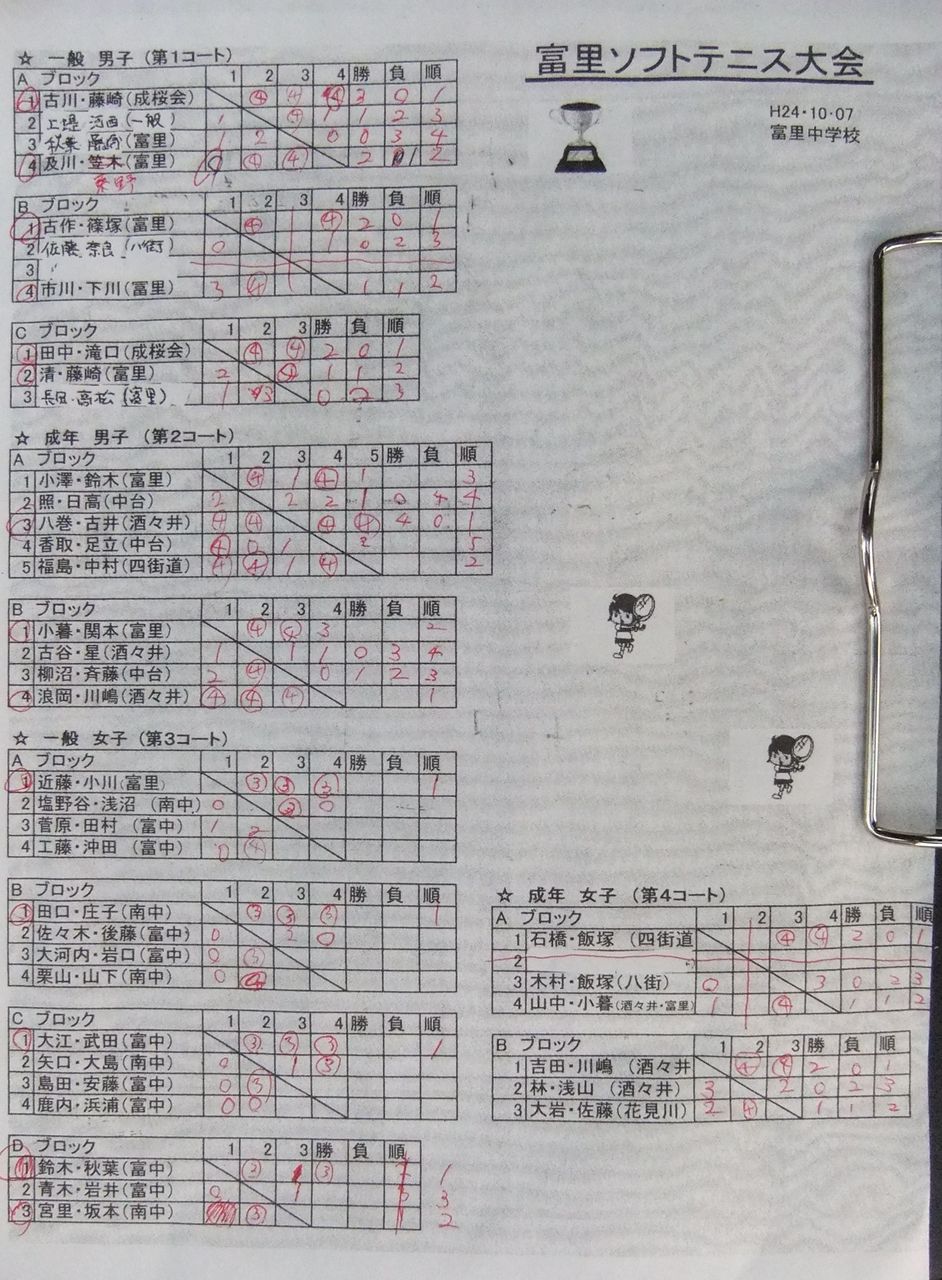 富里ソフトテニス大会
H24・10・07
富里中学校
☆ 一般 男子 (第1コート)
A ブロック 1 2 3 4 勝 負 順
1 古川・藤崎(成桜会) ④ ④ ④ 3 0 1
2 上堤 河西(一般) 1 ④ 1 1 2 3
3 秋葉 (富里) 1 2 0 0 3 4
4 及川・笠木(富里) ④ ④ 2 1 2
B ブロック 1 2 3 4 勝 負 順
1 古作・篠塚(富里) ④ ④ 2 0 1
2 佐藤 奈良(八街) 0 1 0 2 3
3
4 市川・下川(富里) 3 ④ 1 1 2
C ブロック 1 2 3 勝 負 順
1 田中・滝口(成桜会) ④ ④ 2 0 1
2 清・藤崎(富里) 2 ④ 1 1 2
3 高松(富里) 1 3 0 2 3
☆ 成年 男子 (第2コート)
A ブロック 1 2 3 4 5 勝 負 順
1 小澤・鈴木(富里) ④ 1 ④ 1 3
2 照・日高(中台) 2 2 2 1 0 4 4
3 八巻・古井(酒々井) ④ ④ ④ ④ 4 0 1
4 香取・足立(中台) ④ 0 1 2 5
5 福島・中村(四街道) ④ ④ 1 ④ 2
B ブロック 1 2 3 4 勝 負 順
1 小暮・関本(富里) ④ ④ 3 2
2 古谷・星(酒々井) 1 1 1 0 3 4
3 柳沼・斉藤(中台) 2 ④ 0 1 2 3
4 浪岡・川嶋(酒々井) ④ ④ ④ 1
☆ 一般 女子 (第3コート)
A ブロック 1 2 3 4 勝 負 順
1 近藤・小川(富里) ③ ③ ③ 1
2 塩野谷・浅沼 (南中) 0 ③ 0
3 菅原・田村 (富中) 1 2
4 工藤・沖田 (富中) 0 ④
B ブロック 1 2 3 4 勝 負 順
1 田口・庄子(南中) ③ ③ ③ 1
2 佐々木・後藤(富中) 0 2 0
3 大河内・岩口(富中) 0 ③
4 栗山・山下(南中) 0
C ブロック 1 2 3 4 勝 負 順
1 大江・武田(富中) ③ ③ ③ 1
2 矢口・大島(南中) 0 1 ③
3 島田・安藤(富中) 0 ③
4 鹿内・浜浦(富中) 0 0
D ブロック 1 2 3 勝 負 順
1 鈴木・秋葉(富中) ③ ③ 1
2 青木・岩井(富中) 0 1 3
3 宮里・坂本(南中) ③ 2
☆ 成年 女子 (第4コート)
A ブロック 1 2 3 4 勝 負 順
1 石橋・飯塚 (四街道 ④ ④ 2 0 1
2
3 木村・飯塚(八街) 0 3 0 2 3
4 山中・小暮(酒々井・富里) 1 ④ 1 1 2
B ブロック 1 2 3 勝 負 順
1 吉田・川嶋 (酒々井 ④ ④ 2 0 1
2 林・浅山 (酒々井) 3 2 0 2 3
3 大岩・佐藤(花見川) 2 ④ 1 1 2